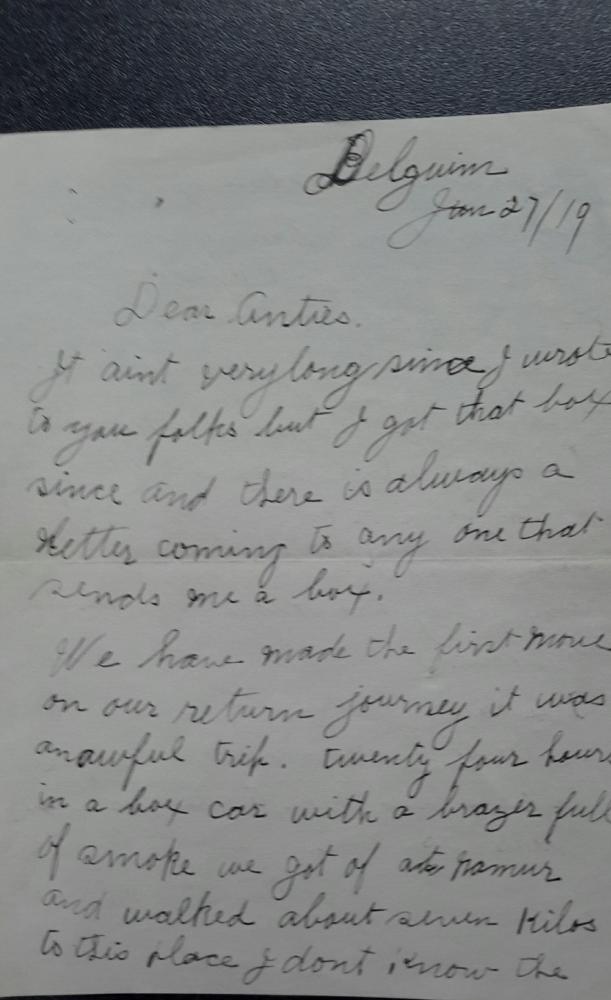 Belguim
Jan 27/19
Dear Anties.
It aint very long since I wrote
to you folks but I got that box
since and there is always a
letter coming to any one that
sends me a box.
We have made the first move
on our return journey it was
an awful trip. twenty four hours
in a box car with a brazer full
of smoke we got of at Namur
and walked about seven Kilos
to this place I dont know the